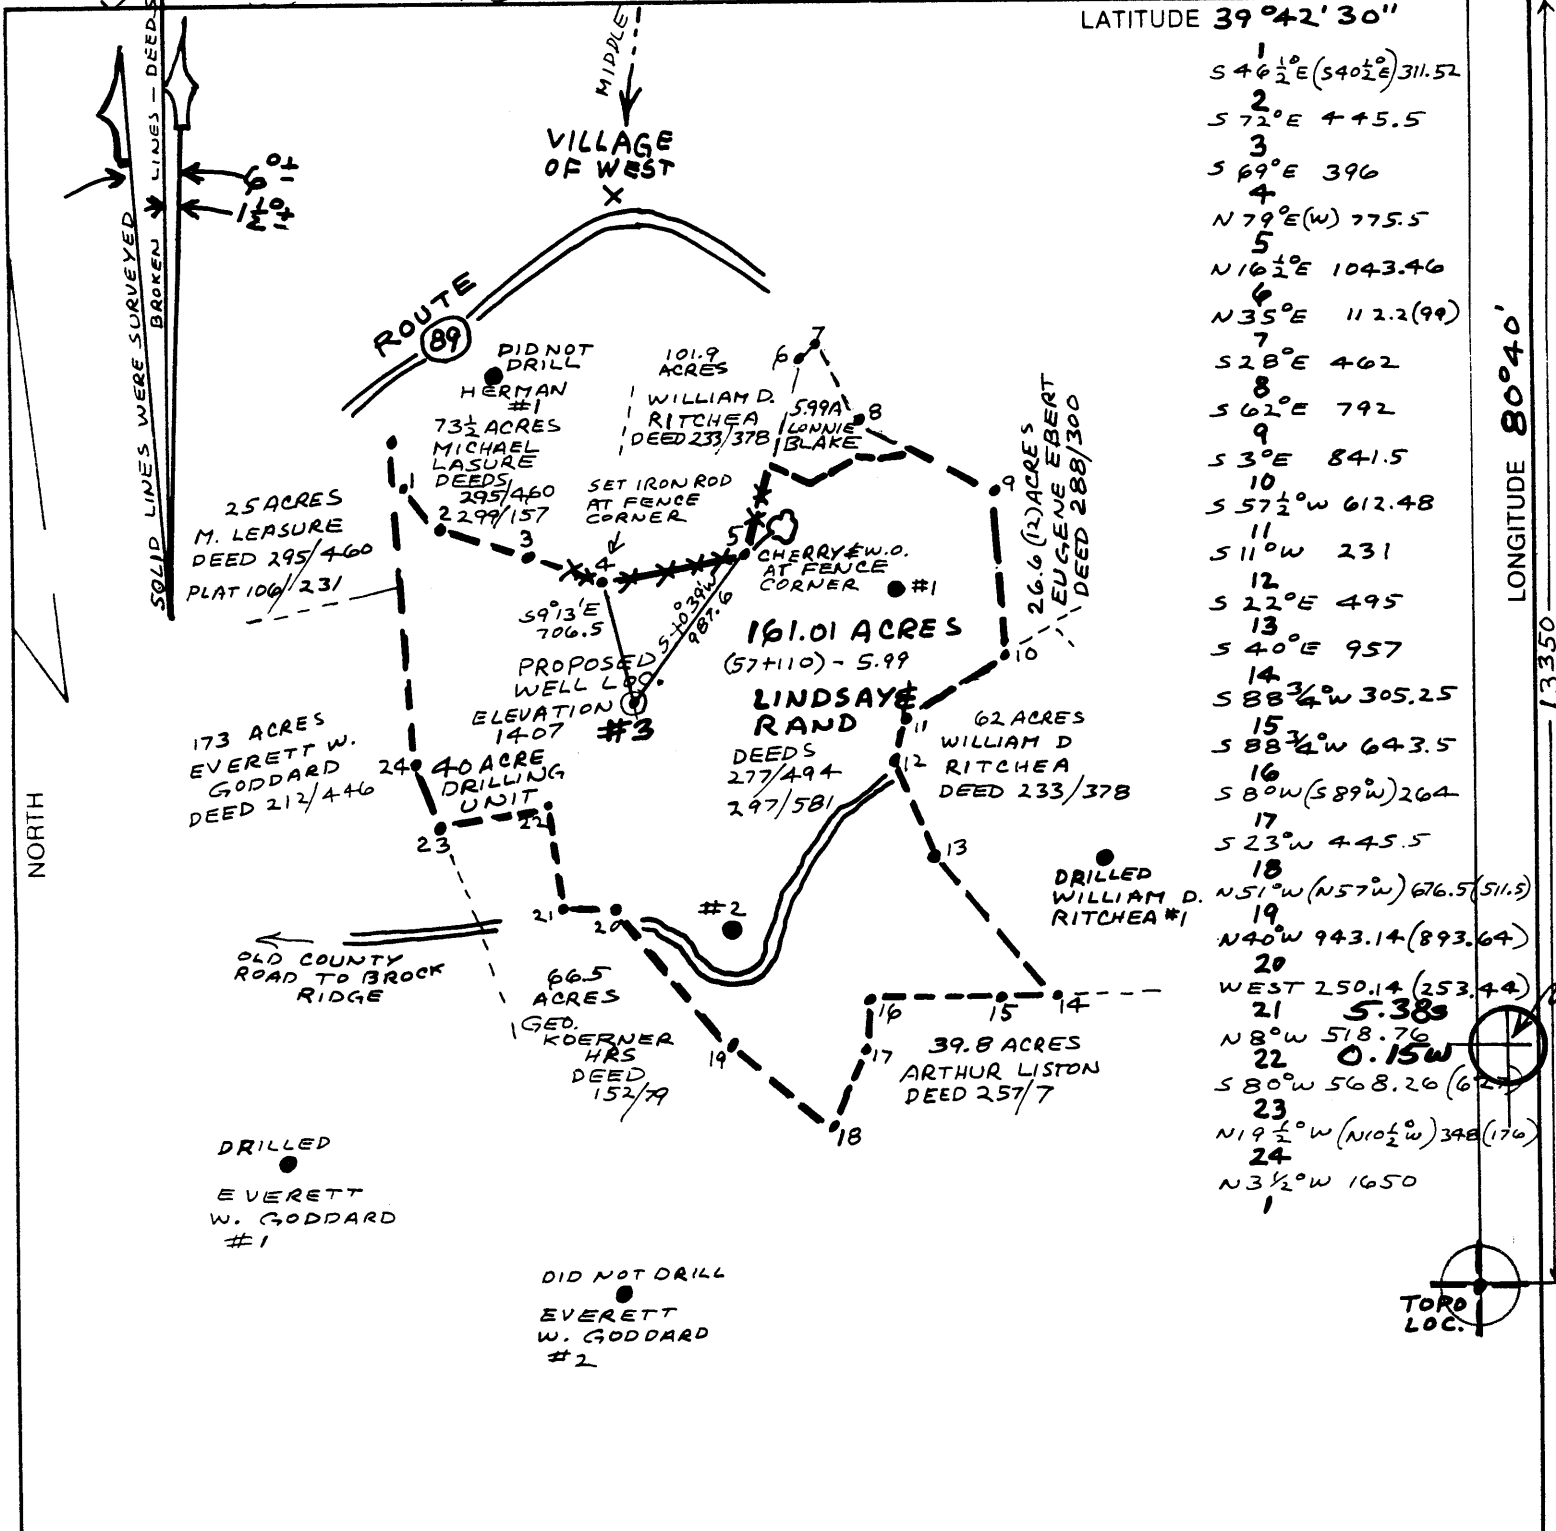 LATITUDE 39°42'30"
MIDDLE
SOLID LINES WERE SURVEYED
BROKEN LINES — DEEDS
6°±
1½°±
VILLAGE
OF WEST
X
ROUTE
89
DID NOT
DRILL
HERMAN
#1
73½ ACRES
MICHAEL
LASURE
DEEDS
295/460
299/157
101.9
ACRES
WILLIAM D.
RITCHEA
DEED 233/378
5.99A
LONNIE
BLAKE
6
7
8
9
26.6 (12) ACRES
EUGENE EBERT
DEED 288/300
25 ACRES
M. LEASURE
DEED 295/460
PLAT 106/231
1
2
3
4
5
SET IRON ROD
AT FENCE
CORNER
CHERRY & W.O.
AT FENCE
CORNER
#1
S9°13'E
706.5
S40°39'W
987.6
PROPOSED
WELL LOC.
ELEVATION
1407
#3
161.01 ACRES
(57+110) - 5.99
LINDSAY E
RAND
DEEDS
277/494
297/581
10
11
12
62 ACRES
WILLIAM D
RITCHEA
DEED 233/378
173 ACRES
EVERETT W.
GODDARD
DEED 212/446
24
40 ACRE
DRILLING
UNIT
22
23
13
NORTH
DRILLED
WILLIAM D.
RITCHEA #1
21
20
#2
OLD COUNTY
ROAD TO BROCK
RIDGE
66.5
ACRES
GEO.
KOERNER
HRS
DEED
152/79
16
15
14
17
19
18
39.8 ACRES
ARTHUR LISTON
DEED 257/7
DRILLED
EVERETT
W. GODDARD
#1
DID NOT DRILL
EVERETT
W. GODDARD
#2
1
S 46½°E (S40½°E) 311.52
2
S 72°E 445.5
3
S 69°E 396
4
N 79°E(W) 775.5
5
N 16½°E 1043.46
6
N 35°E 112.2(99)
7
S 28°E 462
8
S 62°E 792
9
S 3°E 841.5
10
S 57½°W 612.48
11
S 11°W 231
12
S 22°E 495
13
S 40°E 957
14
S 88¾°W 305.25
15
S 88¾°W 643.5
16
S 8°W (S89°W) 264
17
S 23°W 445.5
18
N51°W (N57°W) 676.5(511.5)
19
N40°W 943.14 (893.64)
20
WEST 250.14 (253.44)
21 5.38s
N 8°W 518.76
22 0.15W
S 80°W 568.26
23
N19½°W (N10½°W) 348(176)
24
N3½°W 1650
1
LONGITUDE 80°40'
13350
TOPO
LOC.